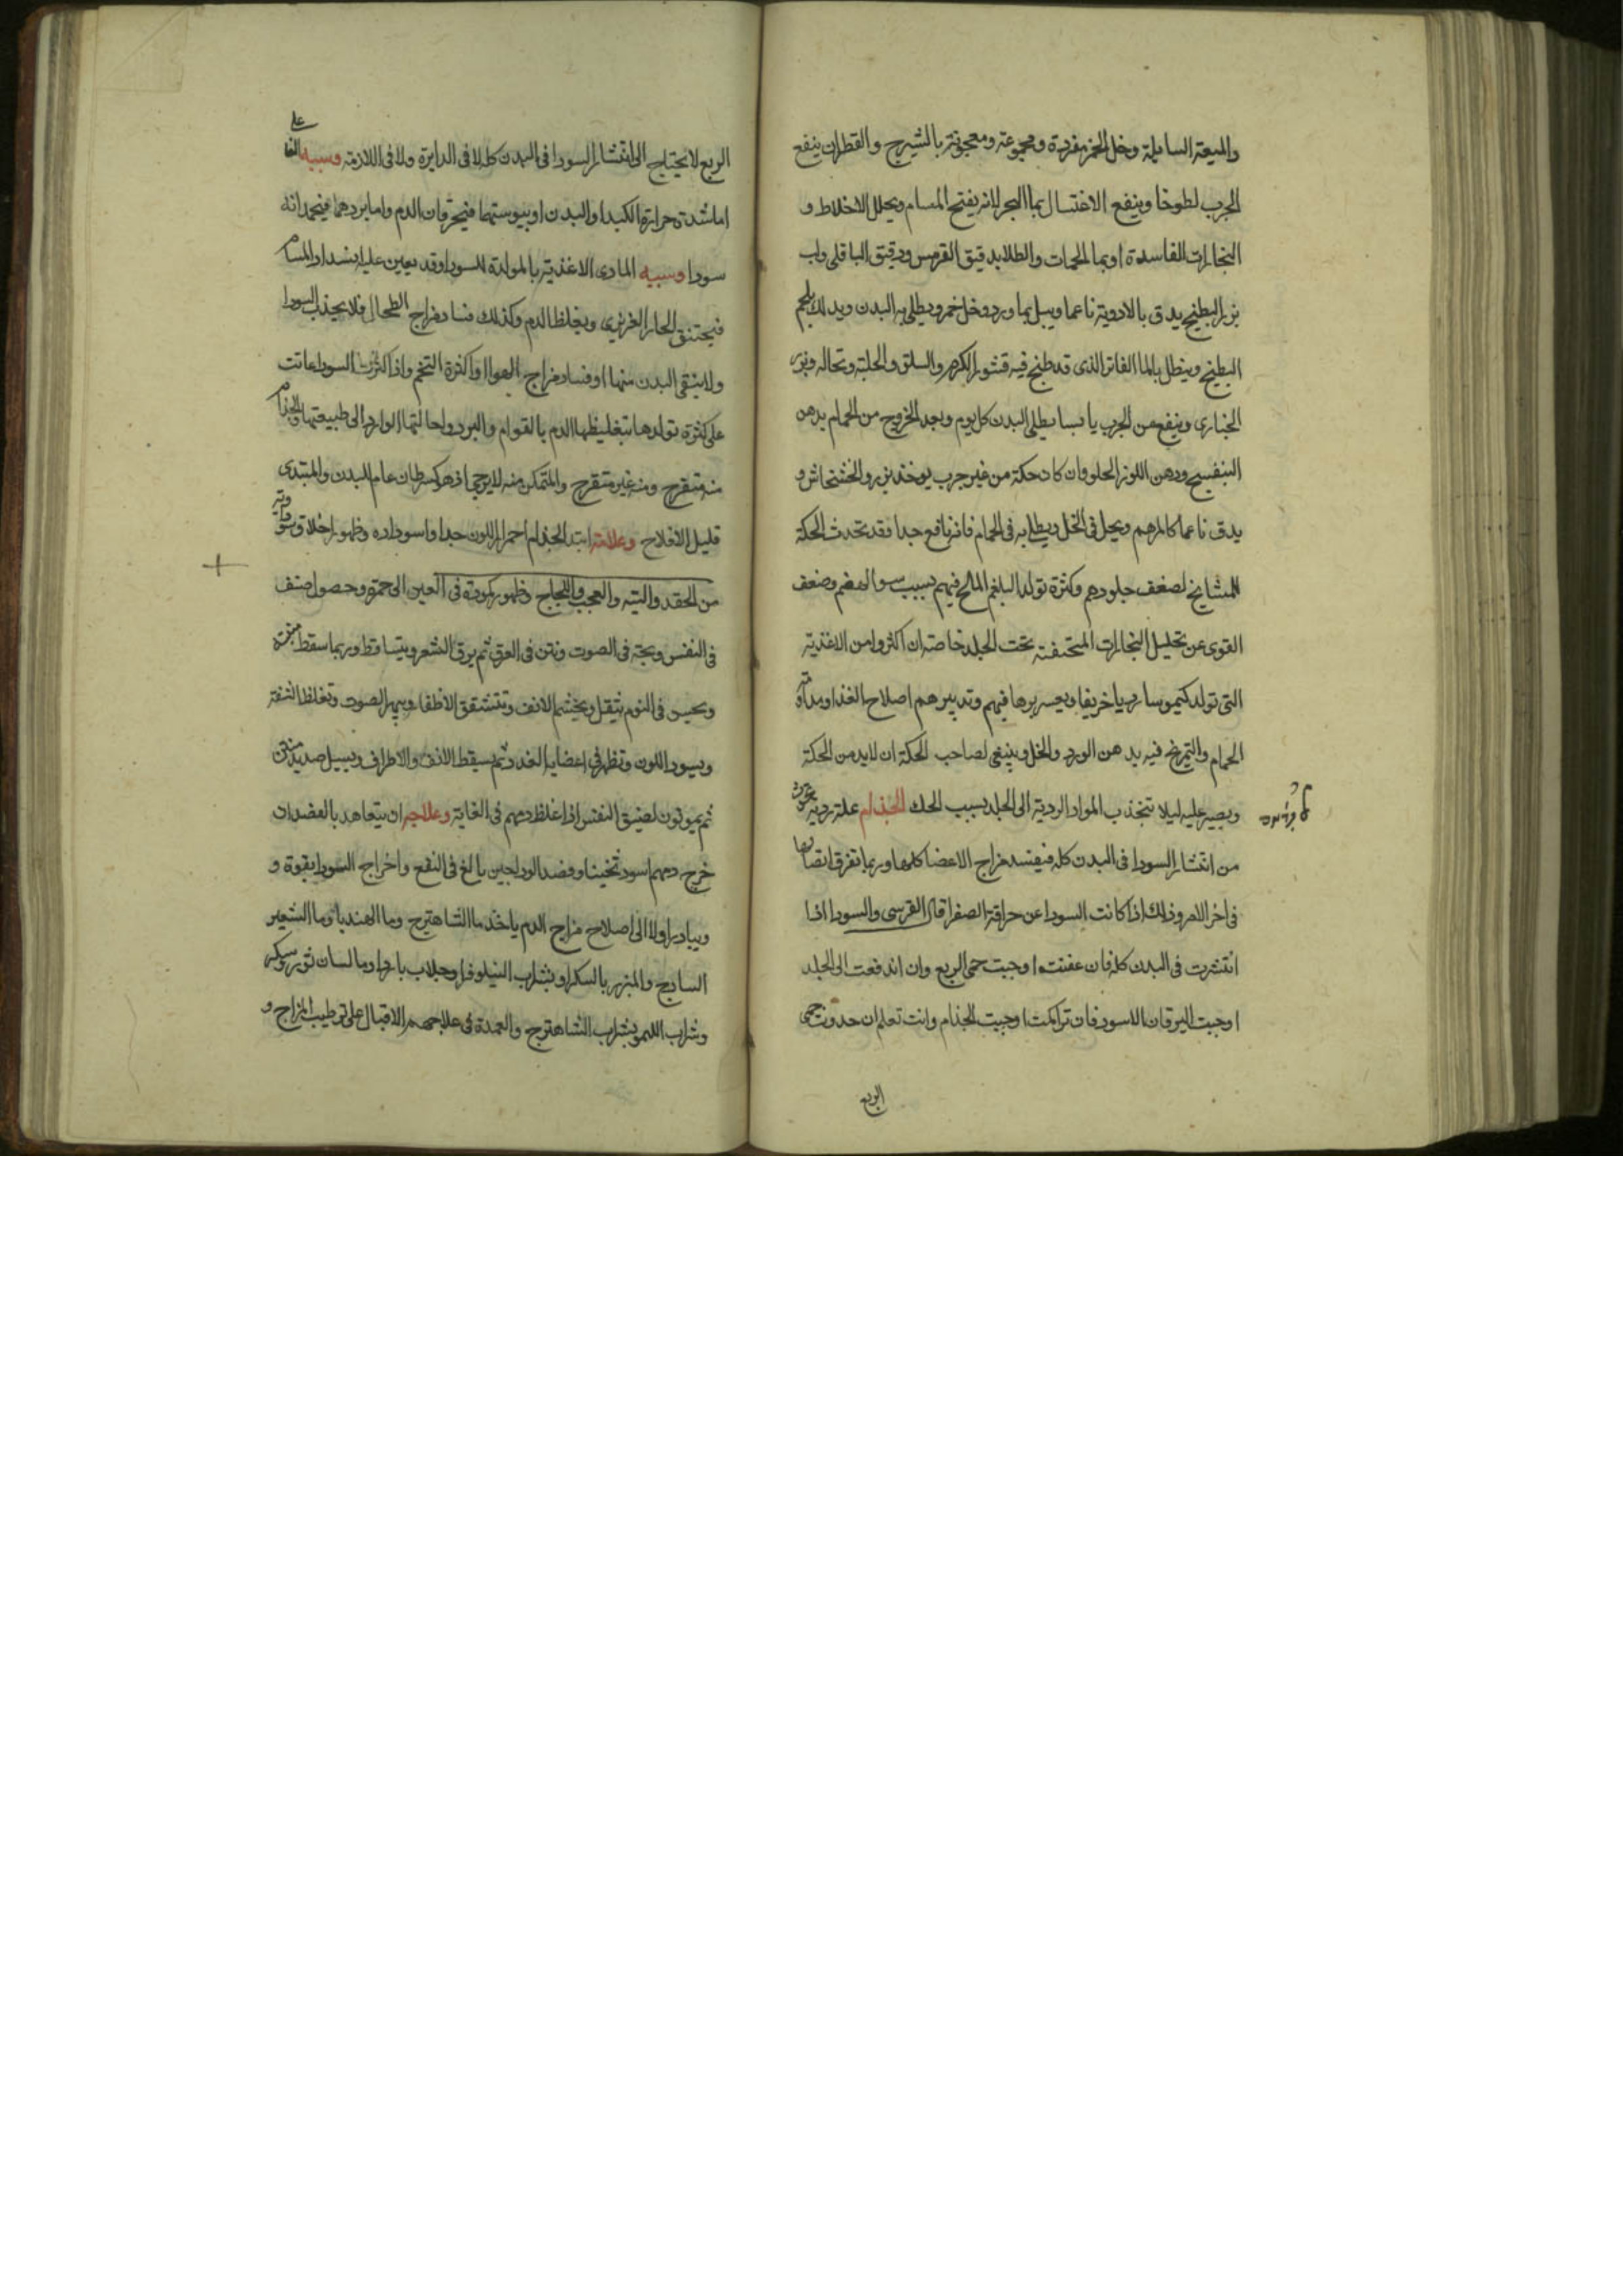 والميعة السايلة وخل الخمر مفردة ومجموعة ومعجونة بالشيرج والقطران ينفع
الجرب لطوخا وينفع الاغتسال بما البحر لانه يفتح المسام ويحلل الاخلاط و
البخارات الفاسدة او بما الحمات والطلا بدقيق الترمس ودقيق الباقلى ولب
بزر البطيخ يدق بالادوية ناعما ويبل بما ورد وخل خمر ويطلى به البدن ويدلك بلحم
البطيخ وينطل بالما الفاتر الذى قد طبخ فيه قشور الكرم والسلق والحلبة ونخاله وبزر
الخبازى وينفع من الجرب يابسا يطلى البدن كل يوم وبعد الخروج من الحمام بدهن
البنفسج ودهن اللوز الحلو فان كان حكة من غير جرب يوخذ بزر والخشخاش و
يدق ناعما كالمرهم ويحل فى الخل ويطلى به فى الحمام فانه نافع جدا وقد تحدث الحكة
للمشايخ لضعف جلودهم وكثرة تولد البلغم المالح فيهم بسبب سو الهضم وضعف
القوى عن تحليل البخارات المحتقنة تحت الجلد خاصة ان اكثروا من الاغذية
التى تولد كيموسا رديا حريفا ويعسر برها فيهم وتدبيرهم اصلاح الغذا ومداومة
الحمام والتمريخ فيه بدهن الورد والخل وينبغى لصاحب الحكة ان لابد من الحكة
ويصبر عليه ليلا تنجذب المواد الردية الى الجلد بسبب الحك الجذام علة ردية تحدث
من انتشار السودا فى البدن كله فيفسد مزاج الاعضا كلها وربما تفرق اتصالها
فى اخر الامر وذلك اذا كانت السودا عن حراقة الصفرا قال القرسى والسودا اذا
انتشرت فى البدن كله فان عفنت اوجبت حمى الربع وان اندفعت الى الجلد
اوجبت اليرقان الاسود فان تراكمت اوجبت الجذام وانت تعلم ان حدوث حمى
الربع
الربع لا يحتاج الى انتشار السودا فى البدن كله لا فى الدايرة ولا فى اللازمة وسببه الفاعلى
اما شدة حرارة الكبد او البدن او يبوستهما فيحترقان الدم واما بردهما فيجمدانه
سودا وسببه المادى الاغذية بالمولدة للسودا وقد يعين عليه انسداد المسام
فيختنق الحار الغريزى ويغلظ الدم وكذلك فساد مزاج الطحال فلا يجذب السودا
ولا ينقى البدن منها او فساد مزاج الهوا او كثرة التخم واذا كثرت السودا عانت
على كثرة تولدها بتغليظها الدم بالقوام والبرد واحالتها الوارد الى طبيعتها والجذام
منه متقرح ومنه غير متقرح والمتمكن منه لا يرجى اذ هو كسرطان عام للبدن والمبتدى
قليل الافلاح وعلامة ابتدا الجذام احمرار اللون جدا واسوداده وظهور اخلاق سوداوية
من الحقد والتيه والعجب واللجاج وظهور كمودة فى العين الى حمرة وحصول ضيف
فى النفس وبحة فى الصوت ونتن فى العرق ثم يرق الشعر ويتساقط وربما سقط
ويحس فى النوم بثقل ويخشم الانف وتتشقق الاظفار الصوت وتغلظ الشفة
ويسود اللون وتظهر فى اعضايه الغدد ثم يسقط الانف والاطراف ويسيل صديد منتن
ثم يموتون لضيق النفس اذا غلظ دمهم فى الغاية وعلاجه ان يتعاهد بالفصد ان
خرج دمهم اسود ثخينا وفصد الوداجين بالغ فى النفع واخراج السودا بقوة و
ويبادر اولا الى اصلاح مزاج الدم ياخذ ما الشاهترج وما الهندبا وما الشعير
السادج والمبزر بالسكر او بشراب النيلوفر او جلاب بارد او ما لسان ثور وسكر
وشراب الليمو بشراب الشاهترج والعمدة فى علاجهم الاقبال على ترطيب المزاج و